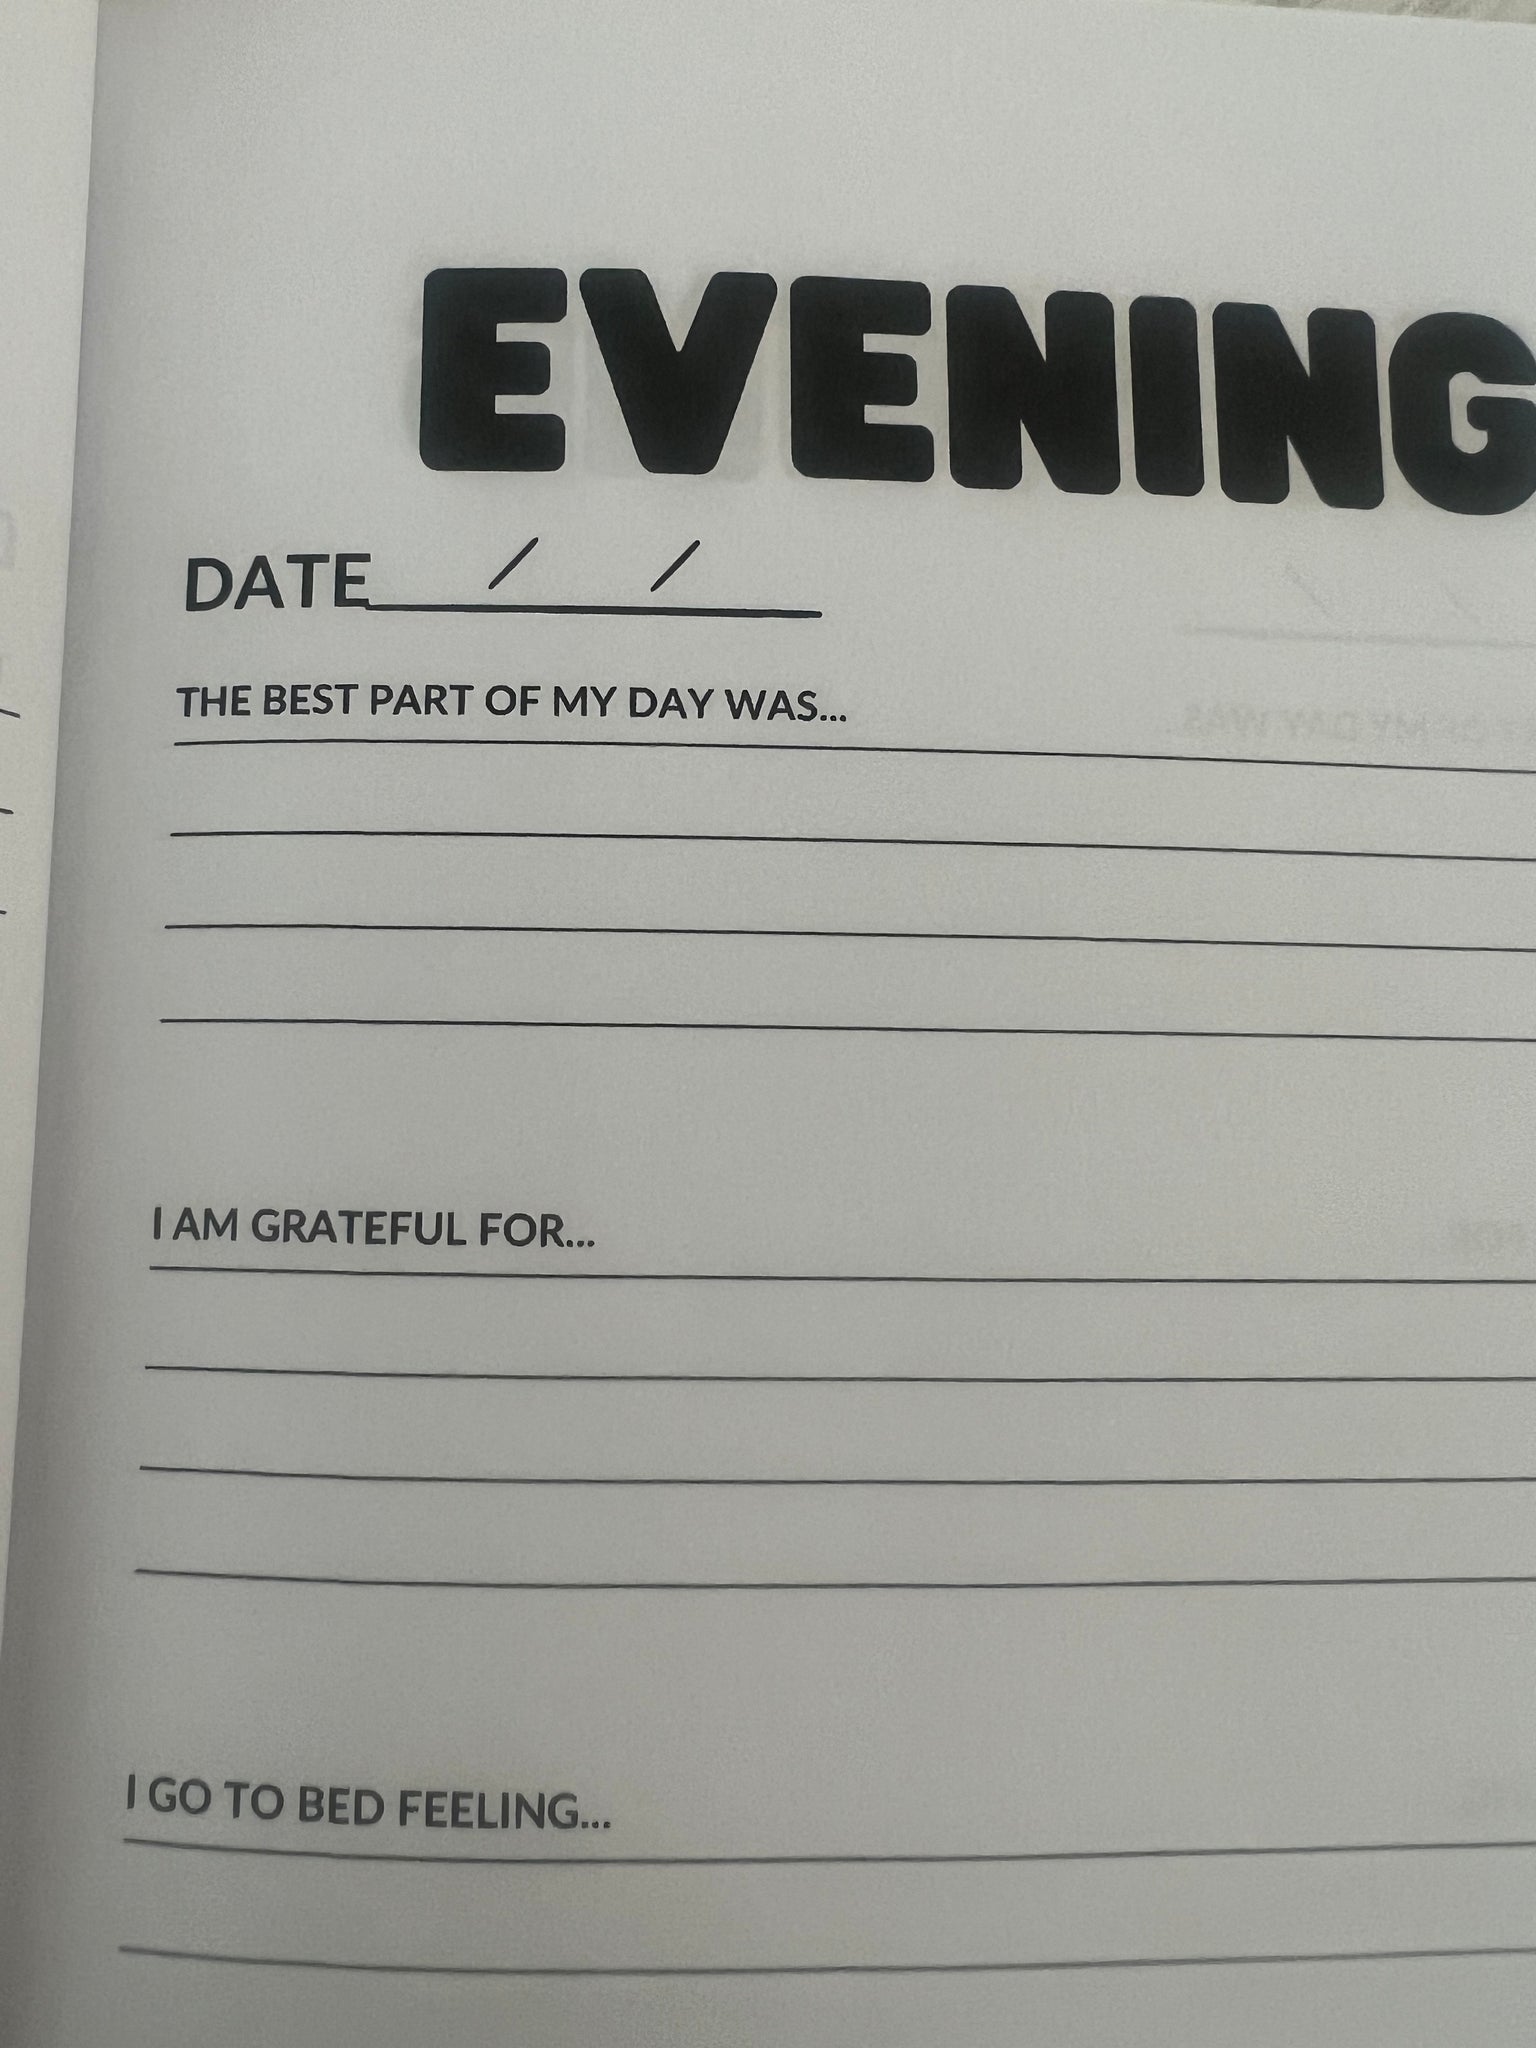 EVENING
DATE / /
THE BEST PART OF MY DAY WAS...
I AM GRATEFUL FOR...
I GO TO BED FEELING...